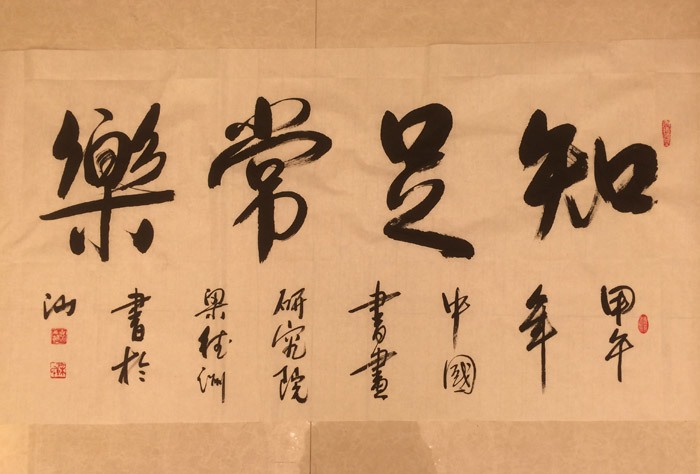 知足常樂
甲午
年
中國
書畫
研究院
梁桂洲
書於
汕